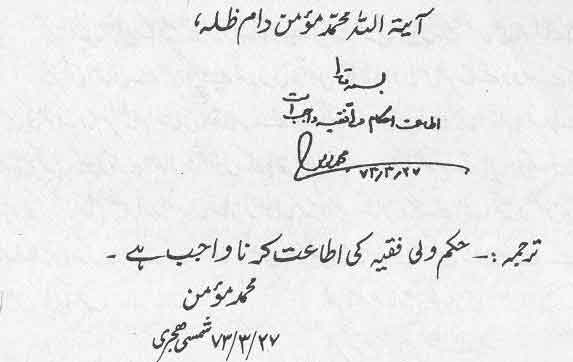 آیۃ اللہ محمد مؤمن دام ظلہ،
بسمہ تعالی
اطاعت احکام ولی فقیہ واجب است
۷۳٫۳٫۲۷
ترجمہ :۔ حکم ولی فقیہ کی اطاعت کرنا واجب ہے ۔
محمد مؤمن
۷۳/۳/۲۷ شمسی ھجری